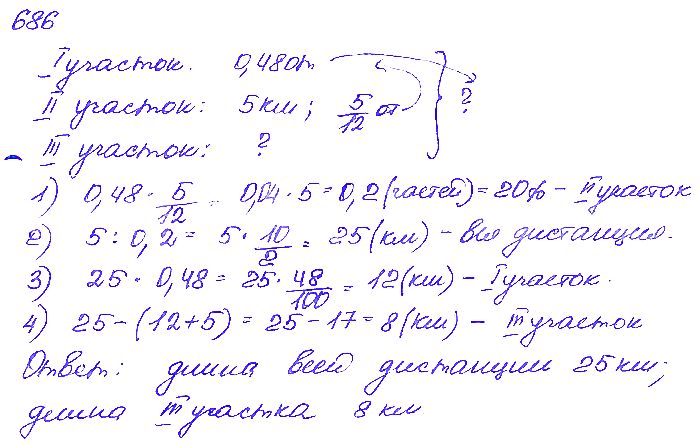 686
I участок. 0,48 от
II участок: 5 км; 5/12 от } ?
III участок: ?
1) 0,48 · 5/12 = 0,04 · 5 = 0,2 (частей) = 20% – II участок
2) 5 : 0,2 = 5 · 10/2 = 25 (км) – вся дистанция.
3) 25 · 0,48 = 25 · 48/100 = 12 (км) – I участок.
4) 25 – (12+5) = 25 – 17 = 8 (км) – III участок
Ответ: длина всей дистанции 25 км;
длина III участка 8 км